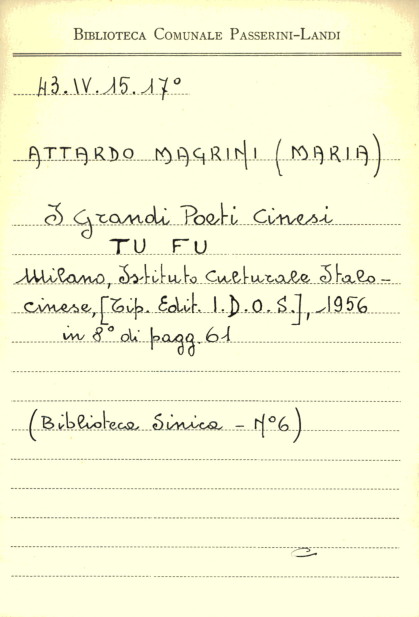 BIBLIOTECA COMUNALE PASSERINI-LANDI
43.IV.15.17°
ATTARDO MAGRINI (MARIA)
I Grandi Poeti Cinesi
TU FU
Milano, Istituto Culturale Italo-
cinese, [Tip. Edit. I.D.O.S.], 1956
in 8° di pagg. 61
(Biblioteca Sinica - N°6)